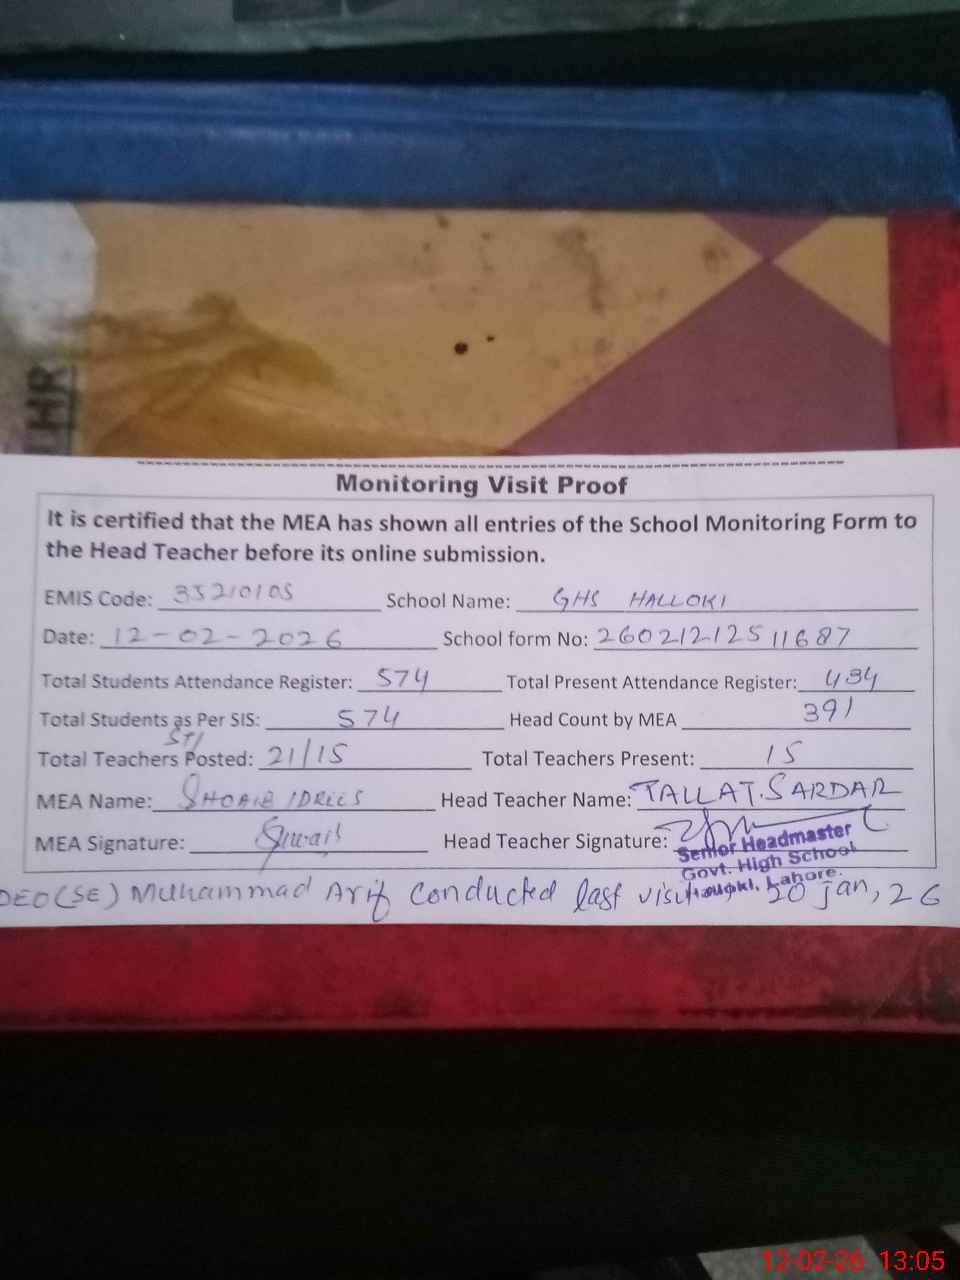 THR
Monitoring Visit Proof
It is certified that the MEA has shown all entries of the School Monitoring Form to
the Head Teacher before its online submission.
EMIS Code: 35210105 School Name: GHS HALLOKI
Date: 12-02-2026 School form No: 26021212511687
Total Students Attendance Register: 574 Total Present Attendance Register: 434
Total Students as Per SIS: 574 Head Count by MEA 391
STI
Total Teachers Posted: 21/15 Total Teachers Present: 15
MEA Name: SHOAIB IDREES Head Teacher Name: TALLAT.SARDAR
MEA Signature: Head Teacher Signature:
Senior Headmaster
Govt. High School
Halloki, Lahore.
DEO(SE) Muhammad Arif Conducted last visit 20 Jan, 26
12-02-26 13:05